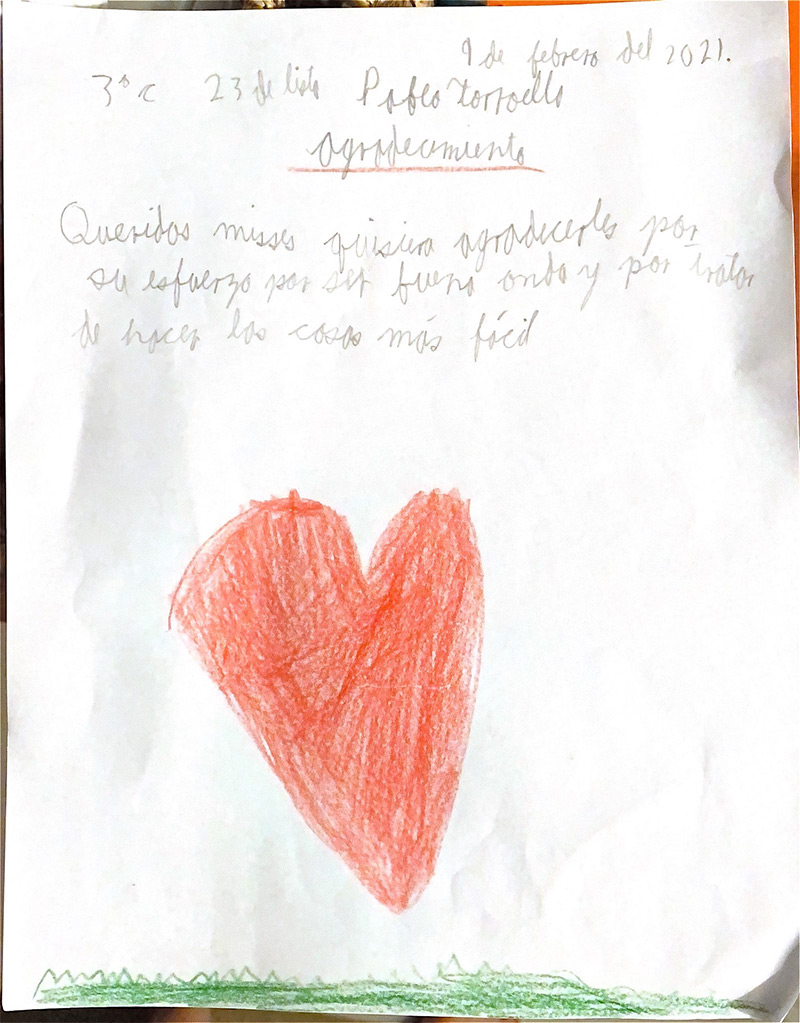 9 de febrero del 2021.
3° c 23 de lista Pablo Torroella
Agradecimiento
Queridas misses quisiera agradecerles por
su esfuerzo por ser buena onda y por tratar
de hacer las cosas más fácil